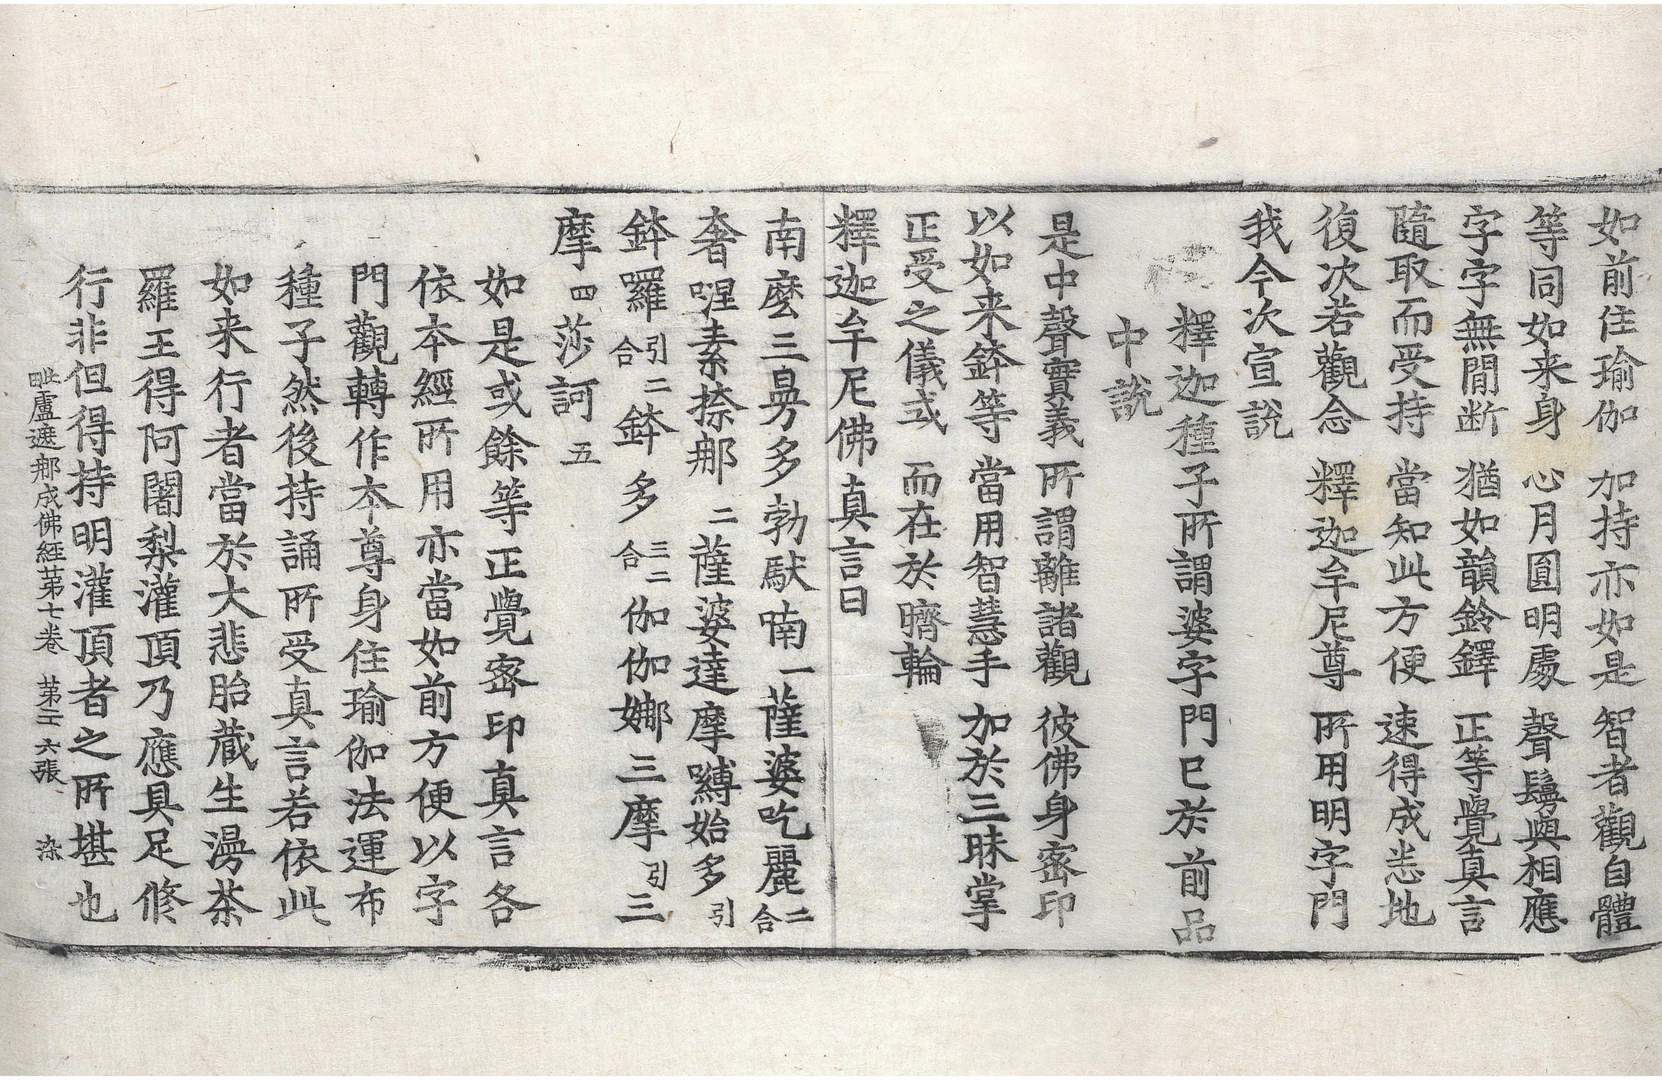 如前住瑜伽 加持亦如是 智者觀自體
等同如来身 心月圓明處 聲鬘與相應
字字無間断 猶如韻鈴鐸 正等覺真言
隨取而受持 當知此方便 速得成悉地
復次若觀念 釋迦牟尼尊 所用明字門
我今次宣説
釋迦種子所謂婆字門已於前品
中説
是中聲實義 所謂離諸觀 彼佛身密印
以如来鉢等 當用智慧手 加於三昧掌
正受之儀式 而在於臍輪
釋迦牟尼佛真言曰
南麼三曼多勃馱喃一薩婆吃麗二合
奢哩素捺那 二薩婆達摩嚩始多引
鉢羅引二合鉢多三二合伽伽娜三摩引三
摩四莎訶五
如是或餘等正覺密印真言各
依本經所用亦當如前方便以字
門觀轉作本尊身住瑜伽法運布
種子然後持誦所受真言若依此
如来行者當於大悲胎蔵生漫荼
羅王得阿闍梨灌頂乃應具足修
行非但得持明灌頂者之所堪也
毗盧遮那成佛經第七卷 第二六張 染